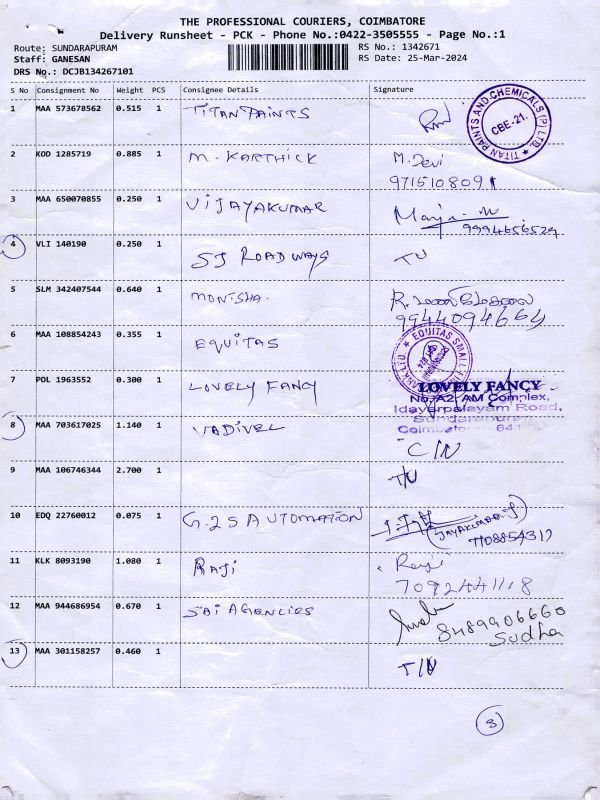 THE PROFESSIONAL COURIERS, COIMBATORE
Delivery Runsheet - PCK - Phone No.:0422-3505555 - Page No.:1
Route: SUNDARAPURAM RS No.: 1342671
Staff: GANESAN RS Date: 25-Mar-2024
DRS No.: DCJB134267101
S No Consignment No Weight PCS Consignee Details Signature
1 MAA 573678562 0.515 1 TITAN PAINTS
TITAN PAINTS AND CHEMICALS (P) LTD.
CBE-21.
2 KOD 1285719 0.885 1 M. KARTHICK M. Devi
9715108091
3 MAA 650070855 0.250 1 VIJAYAKUMAR
9994656529
4 VLI 140190 0.250 1 SJ ROADWAYS
5 SLM 342407544 0.640 1 MONISHA. R. மணிமேகலை
9944094664
6 MAA 108854243 0.355 1 EQUITAS
EQUITAS SMALL
BANK LTD
7 POL 1963552 0.300 1 LOVELY FANCY LOVELY FANCY
No. A2, AM Complex,
Idayarpalayam Road,
8 MAA 703617025 1.140 1 VADIVEL
C/N
9 MAA 106746344 2.700 1
10 EDQ 22760012 0.075 1 G.2S AUTOMATION (JAYAKUMAR
7708854317
11 KLK 8093190 1.080 1 RAJI Raji
7092441118
12 MAA 944686954 0.670 1 SAI AGENCIES
8489906660
Sudha
13 MAA 301158257 0.460 1 T/N